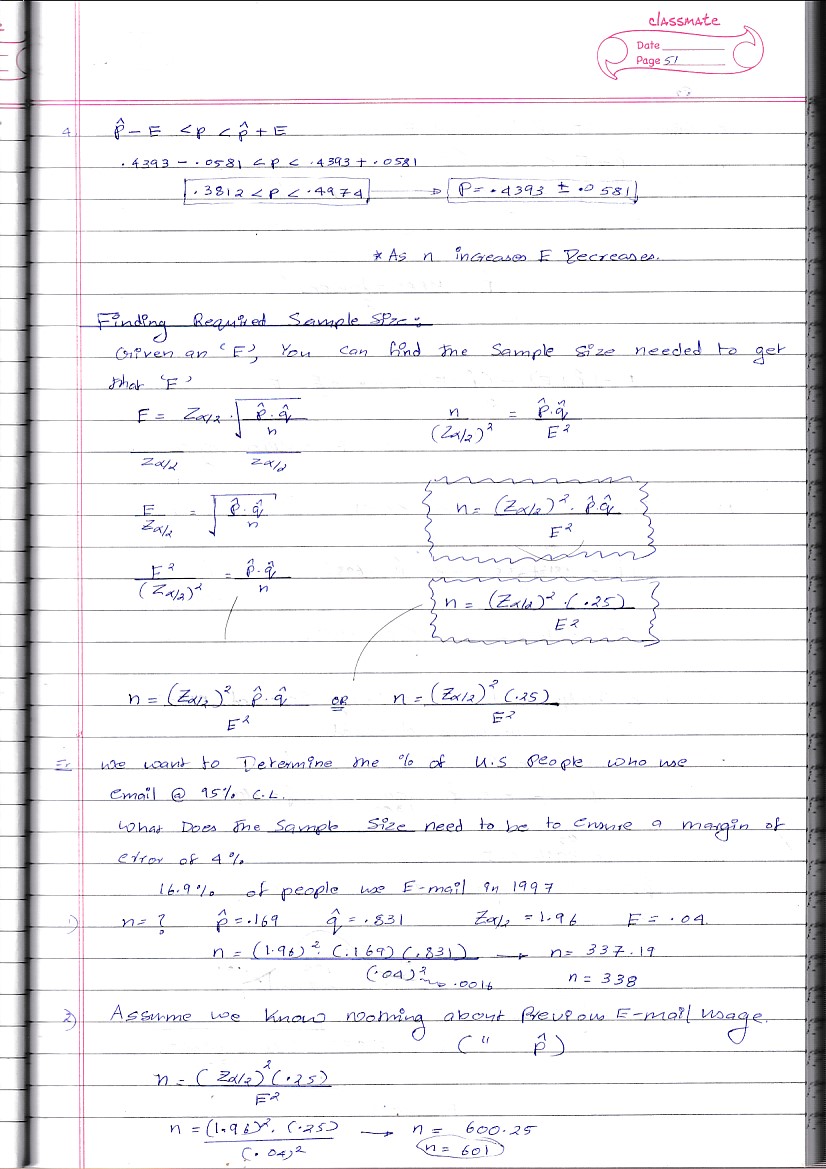 classmate
Date
Page 51
4 p̂ - E < p < p̂ + E
.4393 - .0581 < p < .4393 + .0581
.3812 < P < .4974 → P = .4393 ± .0581
* As n increases E Decreases.
Finding Required Sample Size:
Given an 'E', You can find the Sample Size needed to get
that 'E'
E = Zα/2 · √(p̂·q̂ / n)
Zα/2 Zα/2
E / Zα/2 = √(p̂·q̂ / n)
E² / (Zα/2)² = p̂·q̂ / n
n / (Zα/2)² = p̂·q̂ / E²
n = (Zα/2)² · p̂·q̂ / E²
n = (Zα/2)² · (.25) / E²
n = (Zα/2)² p̂·q̂ / E² OR n = (Zα/2)² (.25) / E²
Ex We want to Determine the % of U.S People who use
email @ 95% C.L.
What Does the Sample Size need to be to ensure a margin of
error of 4%
16.9% of people use E-mail in 1997
1) n = ? p̂ = .169 q̂ = .831 Zα/2 = 1.96 E = .04
n = (1.96)² · (.169) (.831) / (.04)² → n = 337.19
→ .0016 n = 338
2) Assume we know nothing about Previous E-mail usage.
( " p̂ )
n = (Zα/2)² (.25) / E²
n = (1.96)² · (.25) / (.04)² → n = 600.25
n = 601